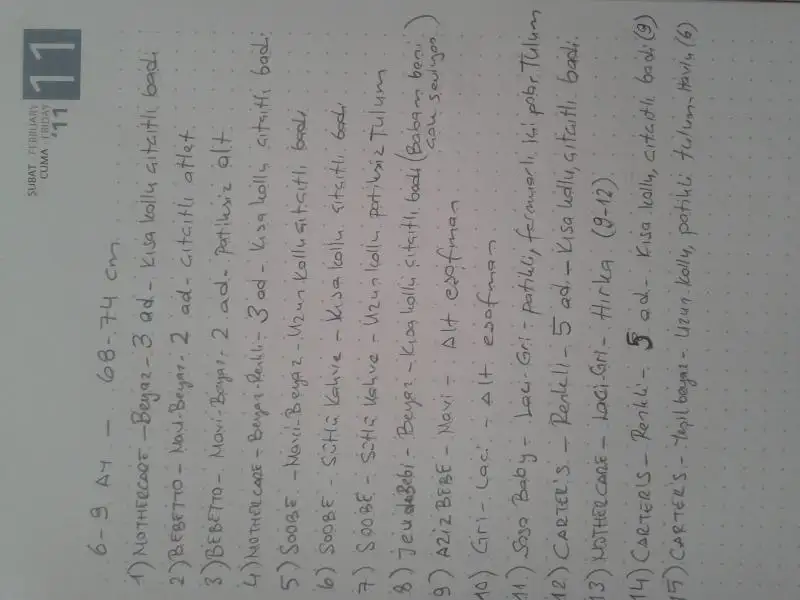 ŞUBAT / FEBRUARY
CUMA / FRIDAY
'11
11
6-9 AY - 68-74 cm
1) MOTHERCARE - Beyaz - 3 ad - kısa kollu çıtçıtlı badi
2) BEBETTO - Mavi-Beyaz - 2 ad - çıtçıtlı atlet
3) BEBETTO - Mavi-Beyaz - 2 ad - patiksiz alt
4) MOTHERCARE - Beyaz-Renkli - 3 ad - kısa kollu çıtçıtlı badi
5) SOOBE - Mavi-Beyaz - Uzun kollu çıtçıtlı badi
6) SOOBE - Sütlü kahve - kısa kollu çıtçıtlı badi
7) SOOBE - Sütlü kahve - Uzun kollu patiksiz Tulum
8) Beyaz - Kısa kollu çıtçıtlı badi (Babam beni
çok seviyor.)
9) AZİZ BEBE - Mavi - Alt eşofman
10) Gri-Laci - Alt eşofman
11) Sosa Baby - Laci-Gri - patikli, fermuarlı, içi polar Tulum
12) CARTER'S - Renkli - 5 ad - kısa kollu, çıtçıtlı badi
13) MOTHERCARE - Laci-Gri - Hırka (9-12)
14) CARTER'S - Renkli - 5 ad - kısa kollu, çıtçıtlı badi (9)
15) CARTER'S - Yeşil beyaz - Uzun kollu, patikli tulum Havlu (6)